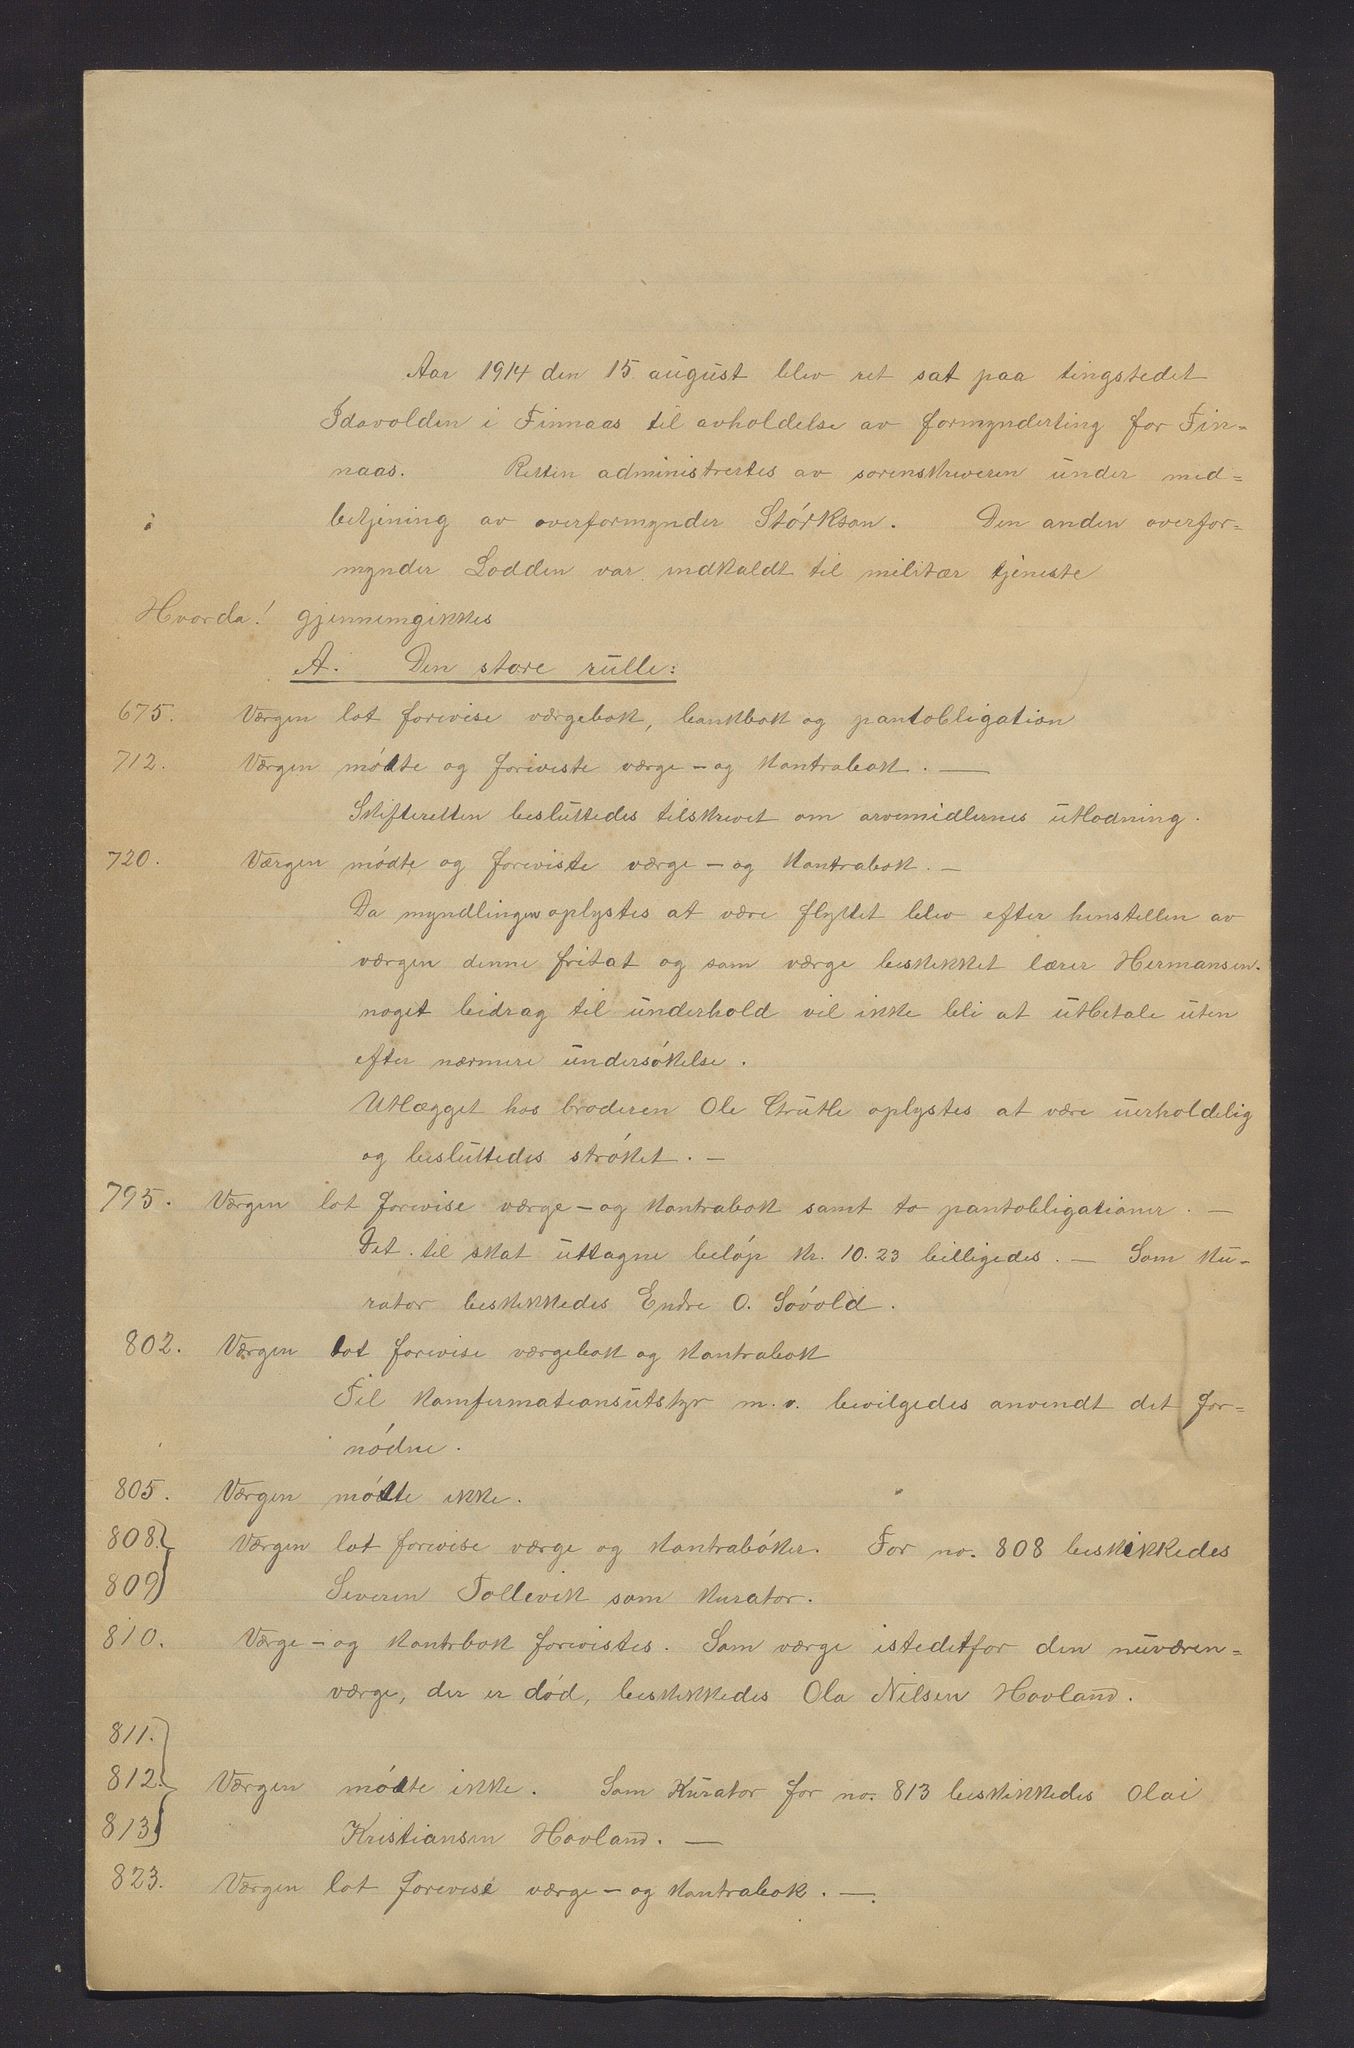 Aar 1914 den 15 august blev ret sat paa tingstedet
Idavolden i Finnaas til avholdelse av formynderting for Fin=
naas. Retten administrertes av sorenskriveren under med=
betjening av overformynder Störksan. Den anden overfor=
mynder Lodden var indkaldt til militær tjeneste
Hvorda! gjennemgikkes
A. Den store rulle:
675. Værgen lot forevise værgebok, bankbok og pantobligation
712. Værgen mödte og foreviste værge - og kontrabok. —
Skifteretten besluttedes tilskrevet om arvemidlernes utlodning.
720. Værgen mödte og foreviste værge - og kontrabok. —
Da myndlingen oplystes at være flyttet blev efter henstillen av
værgen denne fritat og som værge beskikket lærer Hermansen.
noget bidrag til underhold vil ikke bli at utbetale uten
efter nærmere undersökelse.
Utlægget hos broderen Ole Grutle oplystes at være uerholdelig
og besluttedes ströket. —
795. Værgen lot forevise værge - og kontrabok samt to pantobligationer. —
Det til skat uttagne belöp kr. 10.23 billigedes. — Som ku-
rator beskikkedes Endre O. Sövold.
802. Værgen lot forevise værgebok og kontrabok
Til konfirmationsutstyr m. v. bevilgedes anvendt det for=
nödne.
805. Værgen mödte ikke.
808. Værgen lot forevise værge og kontraböker. For no. 808 beskikkedes
809 Severin Tollevik som kurator.
810. Værge - og kontrbok forevistes. Som værge istedetfor den nuværen=
værge, der er död, beskikkedes Ola Nilsen Hovland.
811.
812. Værgen mödte ikke. Som kurator for no. 813 beskikkedes Olai
813 Kristiansen Hovland. —
823. Værgen lot forevise værge - og kontrabok. —.